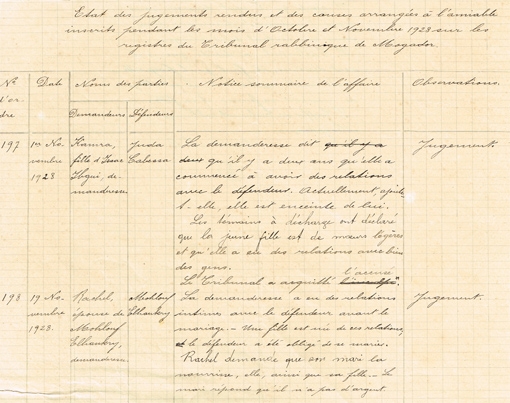 Etat des jugements rendus et des causes arrangées à l'amiable
inscrits pendant les mois d'Octobre et Novembre 1923 sur les
registres du Tribunal rabbinique de Mogador.
No d'or- dre
Date
Noms des parties
Demandeurs
Défendeurs
Notice sommaire de l'affaire
Observations.
197
1er No-
vembre
1923
Kamra,
fille d'Isaac
de-
manderesse
Juda
La demanderesse dit qu'il y a
deux qu'il y a deux ans qu'elle a
commencé à avoir des relations
avec le défendeur. Actuellement, ajoute-
t-elle, elle est enceinte de lui.
Les témoins à décharge ont déclaré
que la jeune fille est de mœurs légères
et qu'elle a eu des relations avec bien
des gens.
Le Tribunal a acquitté l'accusé
Jugement.
198
19 No-
vembre
1923.
Rachel,
épouse de
Mokhlouf
demanderesse
Mokhlouf
La demanderesse a eu des relations
intimes avec le défendeur avant le
mariage - Une fille est née de ces relations,
et le défendeur a été obligé de se marier.
Rachel demande que son mari la
nourrisse, elle, ainsi que sa fille. - Le
mari répond qu'il n'a pas d'argent
Jugement.